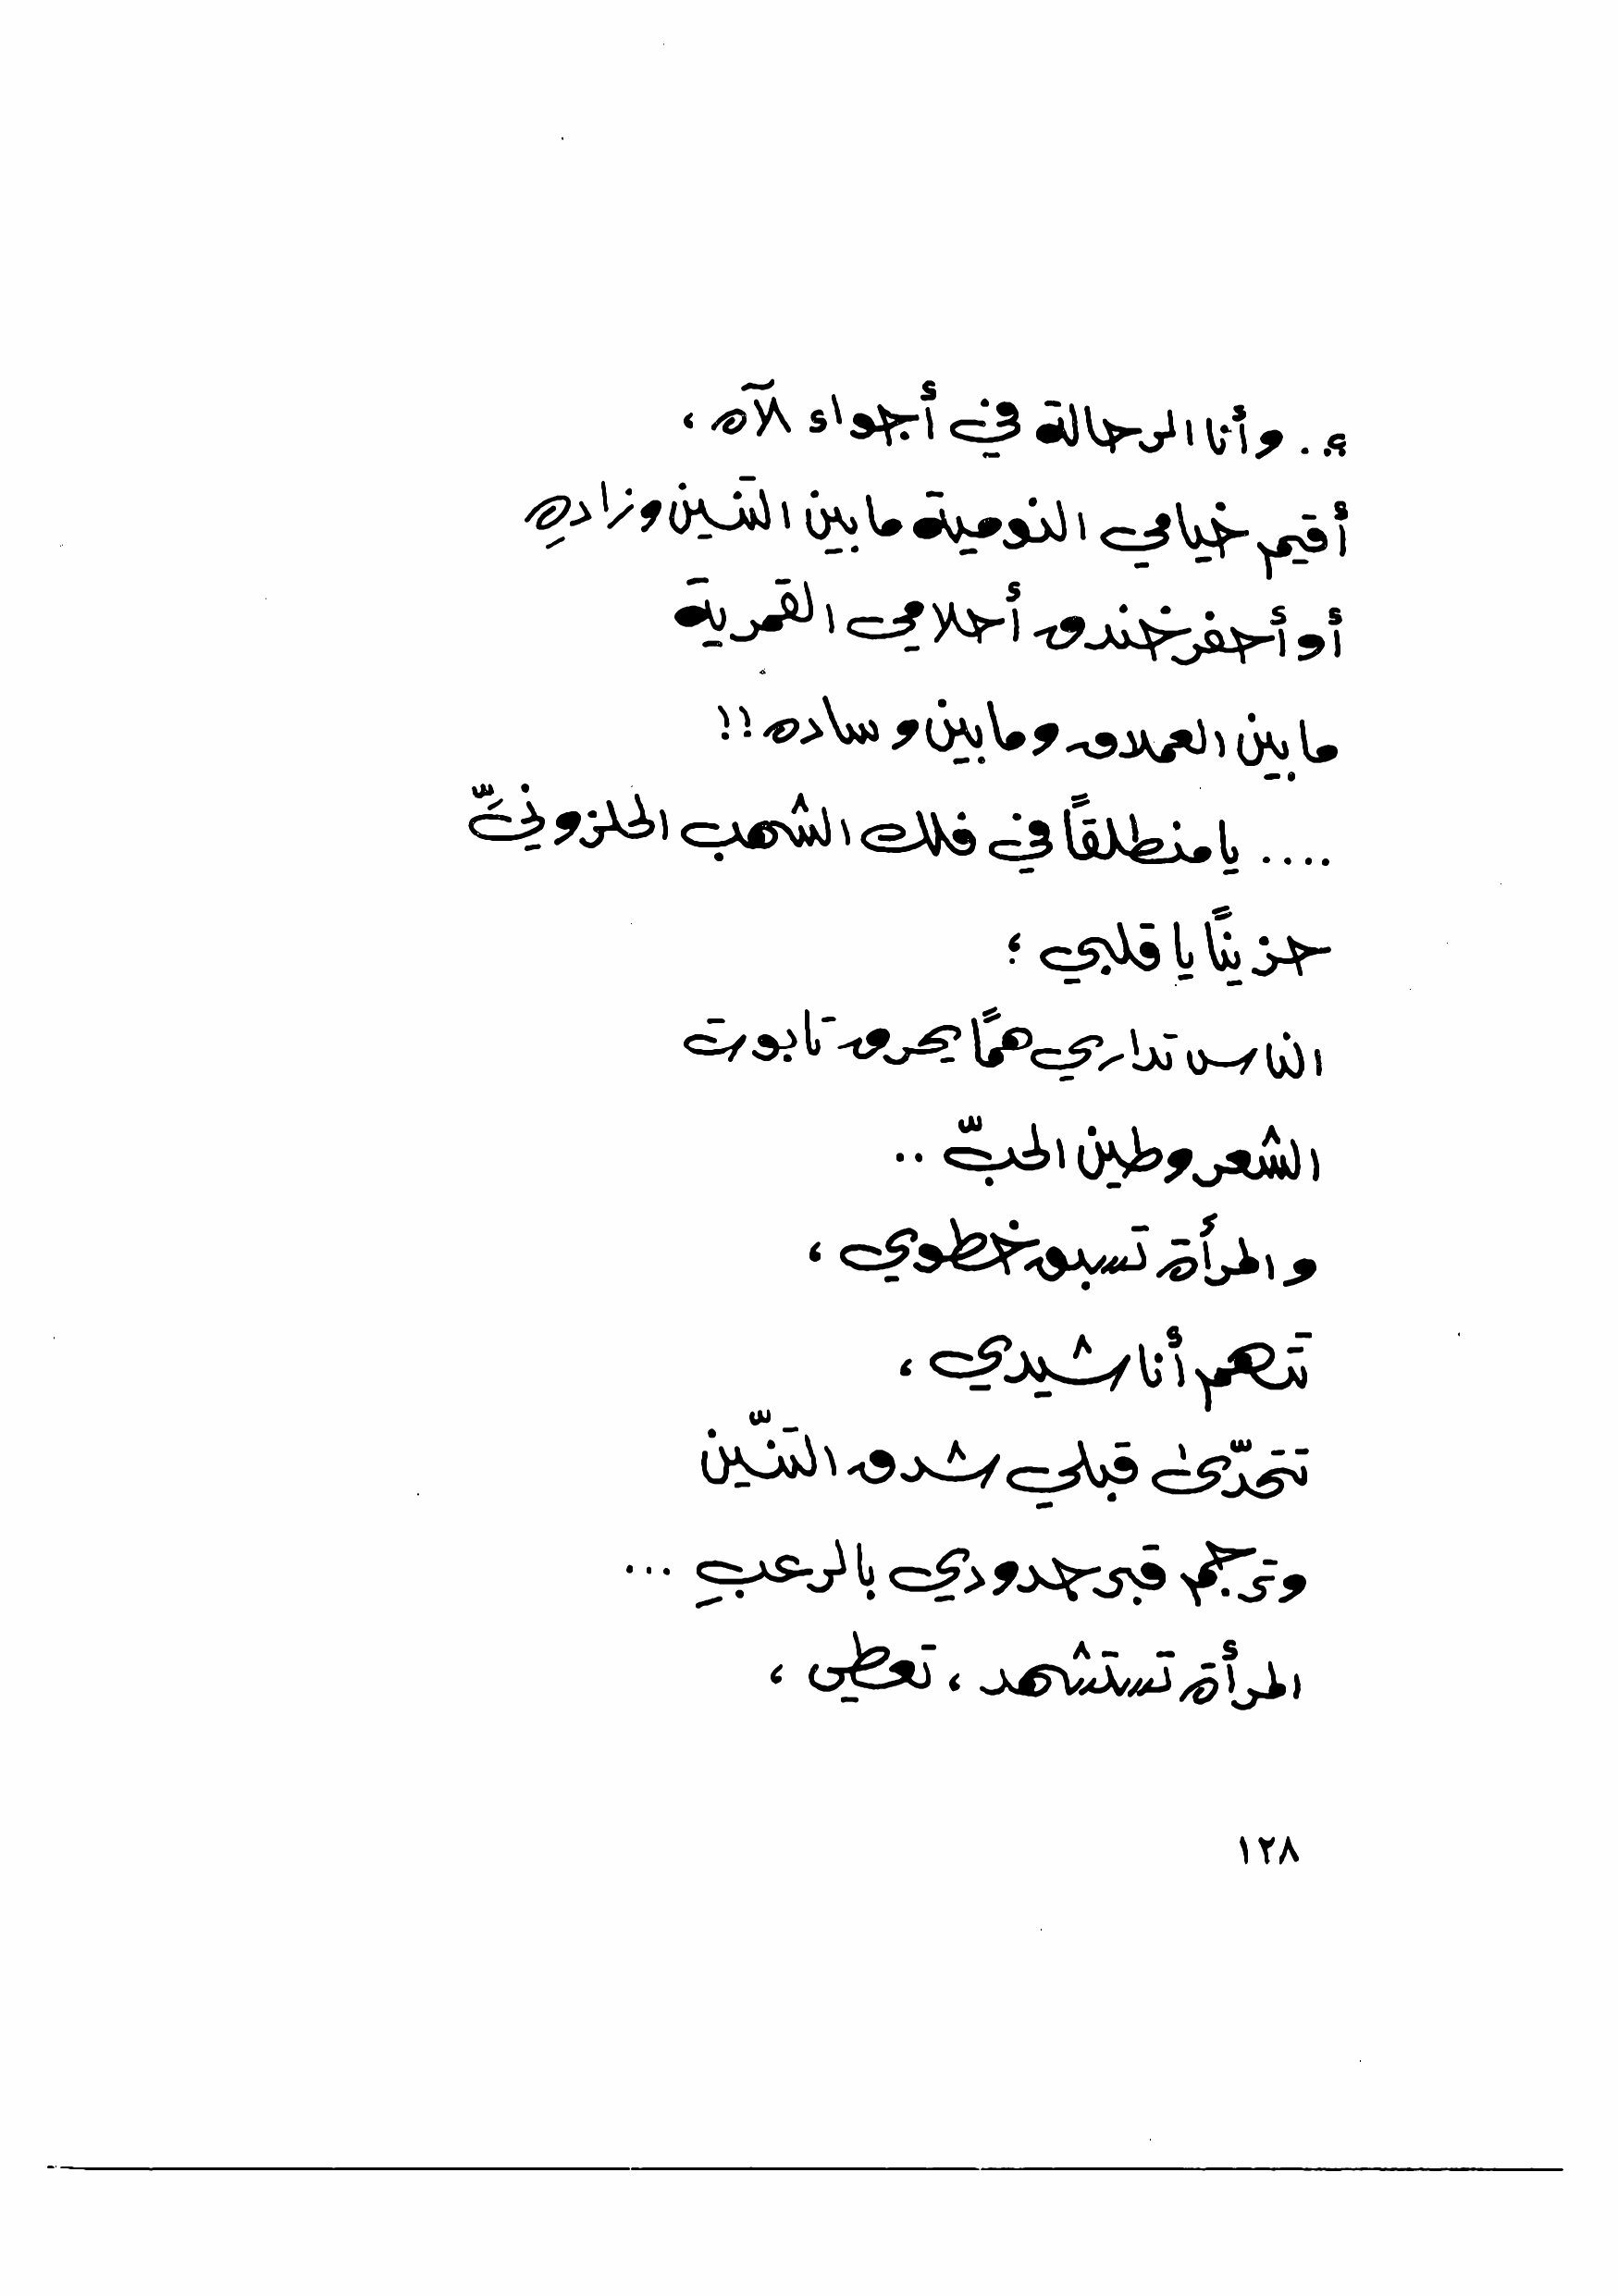 .. وأنا الرحالة في أجواء الآه ،
أقيم خيامي النومية ما بين التنين وزادهِ
أو أحفر خندق أحلامي القمرية
ما بين العملاق وما بين وساده !!
.... يا منطلقاً في فلك الشهب الحلزونيِّ
حزينًا يا قلبي ؛
الناس تداري همًا يحرق تابوت
الشعر وطين الحبّ ..
والمرأة تسبق خطوي ،
تتهم أناشيدي ،
تتحدّى قبلي شدق التنّين
وترجم قبر حدودي بالرعبِ ...
المرأة تستشهد ، تعطي ،
١٢٨